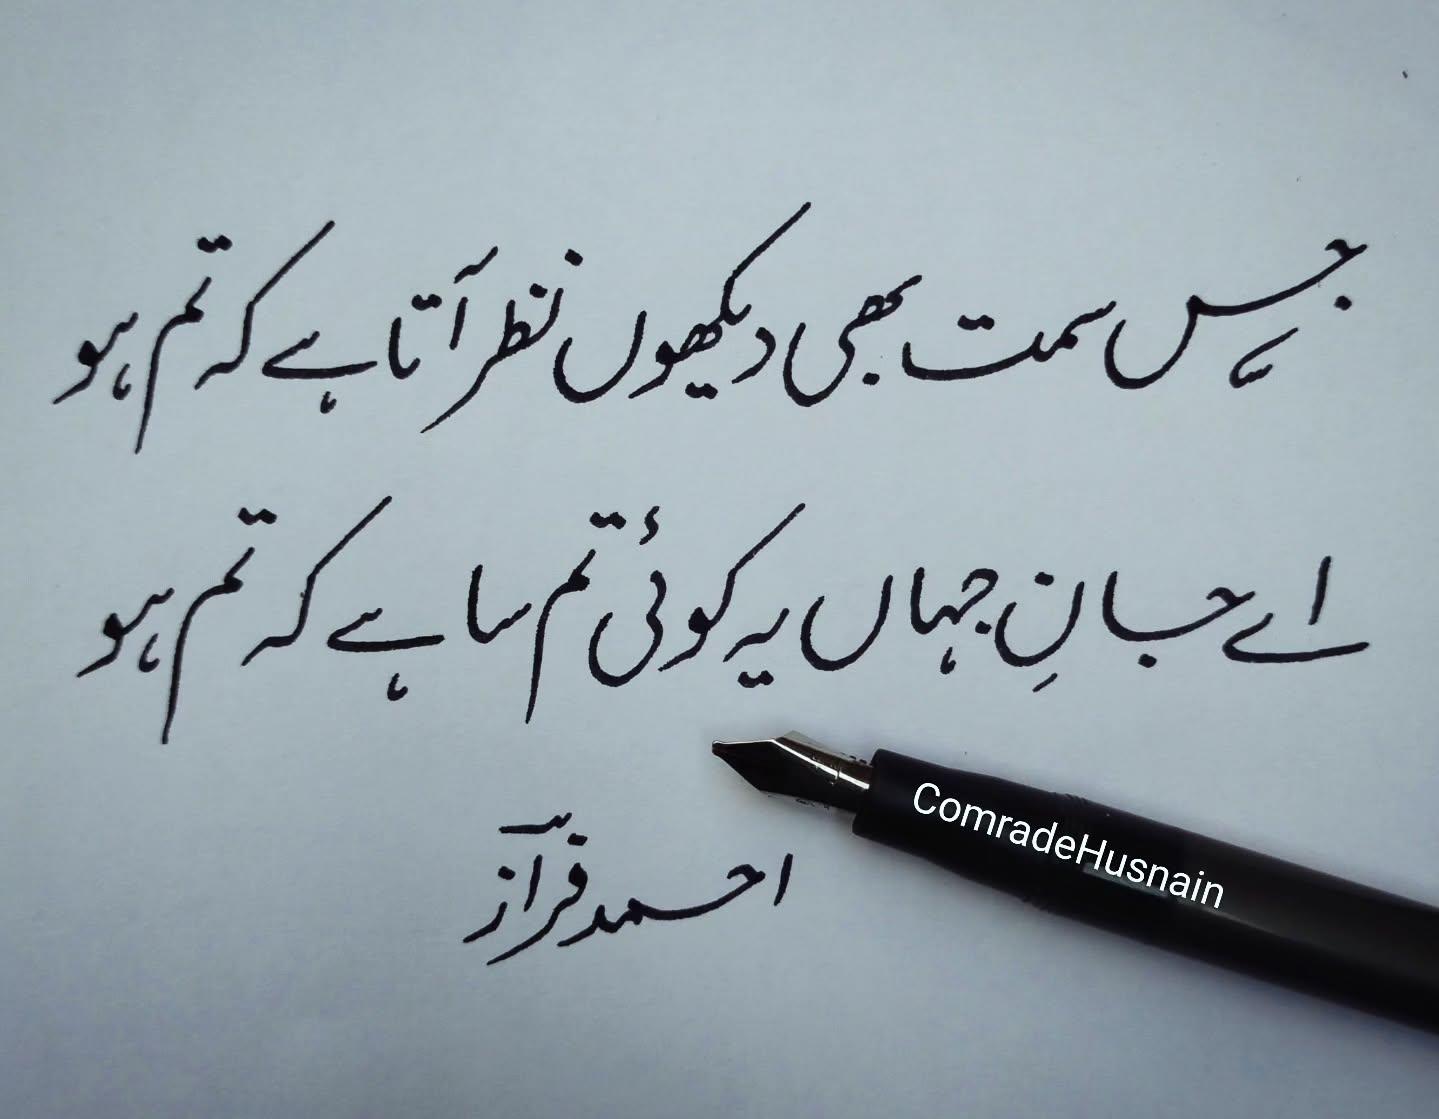 جس سمت بھی دیکھوں نظر آتا ہے کہ تم ہو
اے جانِ جہاں یہ کوئی تم سا ہے کہ تم ہو
احمد فراز
ComradeHusnain